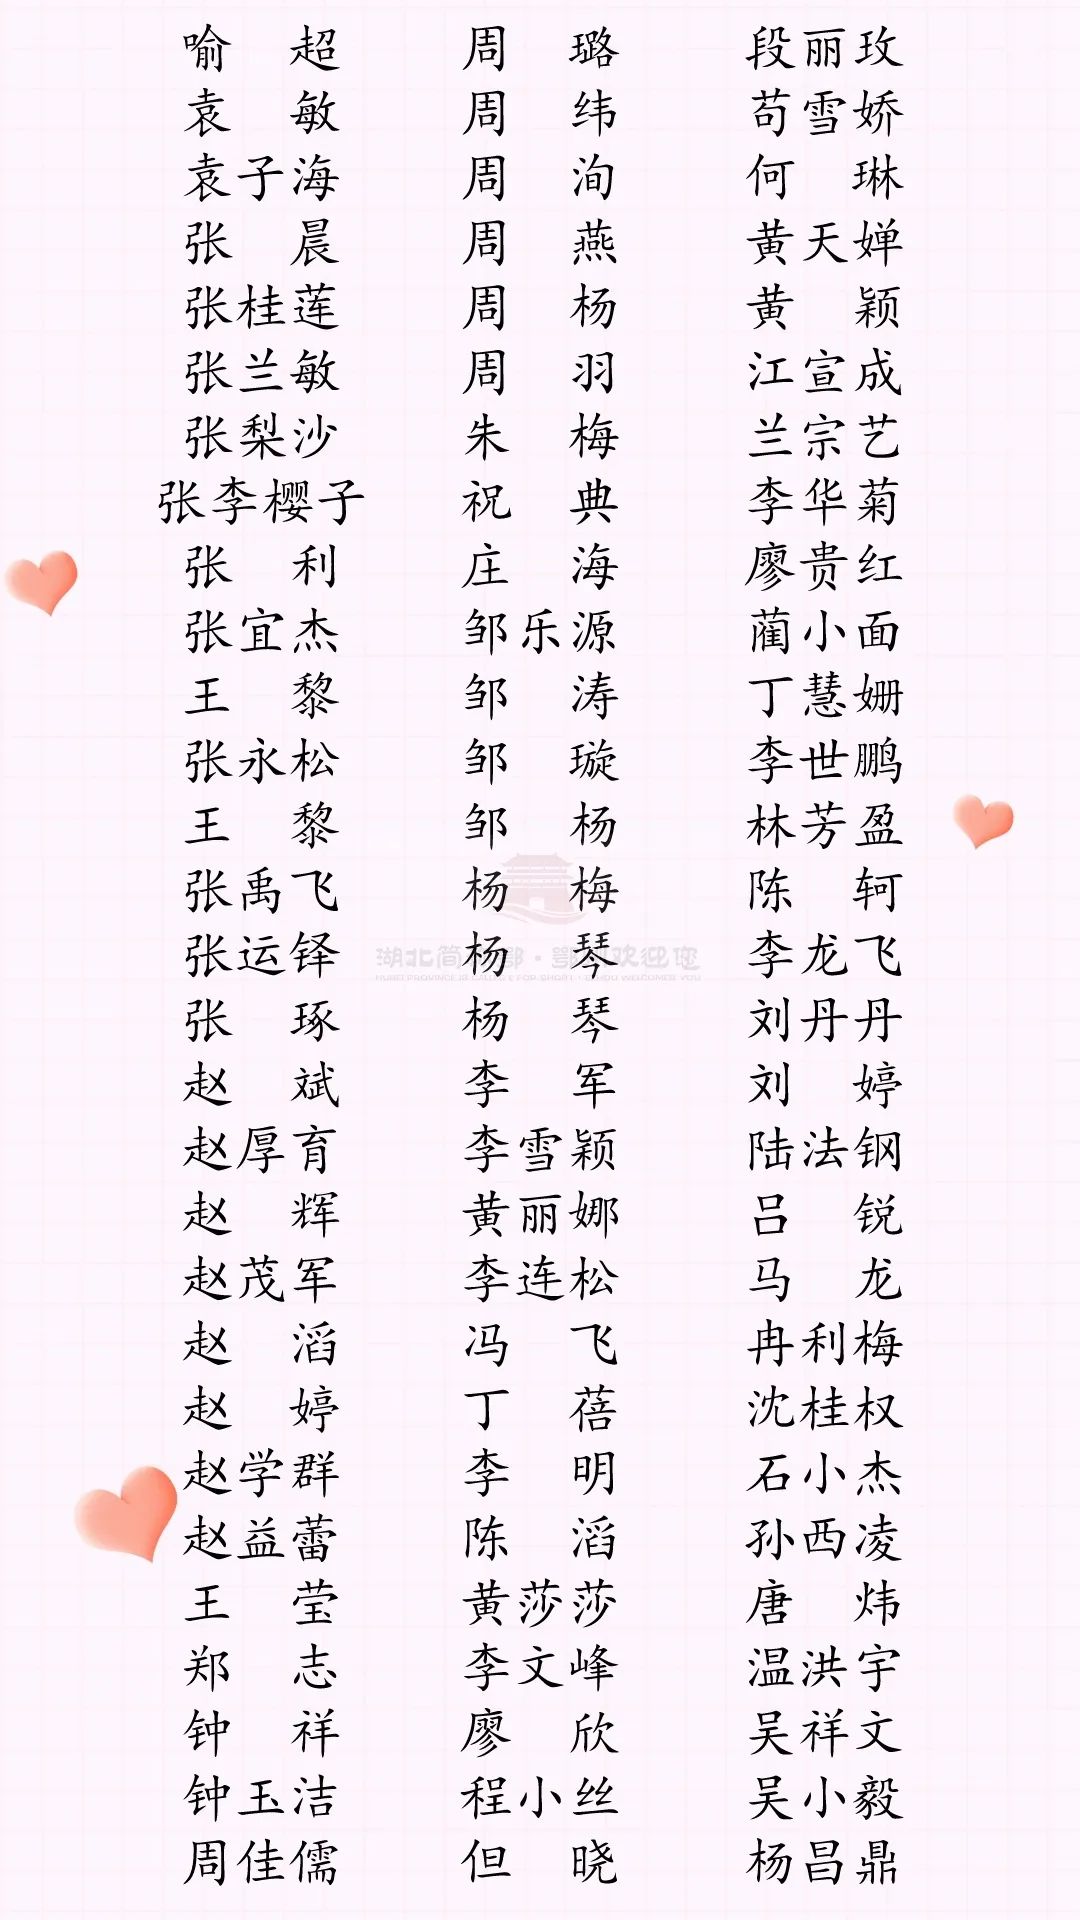 喻 超 周 璐 段丽玫
袁 敏 周 纬 苟雪娇
袁子海 周 洵 何 琳
张 晨 周 燕 黄天婵
张桂莲 周 杨 黄 颖
张兰敏 周 羽 江宣成
张梨沙 朱 梅 兰宗艺
张李樱子 祝 典 李华菊
张 利 庄 海 廖贵红
张宜杰 邹乐源 蔺小面
王 黎 邹 涛 丁慧姗
张永松 邹 璇 李世鹏
王 黎 邹 杨 林芳盈
张禹飞 杨 梅 陈 轲
张运铎 杨 琴 李龙飞
张 琢 杨 琴 刘丹丹
赵 斌 李 军 刘 婷
赵厚育 李雪颖 陆法钢
赵 辉 黄丽娜 吕 锐
赵茂军 李连松 马 龙
赵 滔 冯 飞 冉利梅
赵 婷 丁 蓓 沈桂权
赵学群 李 明 石小杰
赵益蕾 陈 滔 孙西凌
王 莹 黄莎莎 唐 炜
郑 志 李文峰 温洪宇
钟 祥 廖 欣 吴祥文
钟玉洁 程小丝 吴小毅
周佳儒 但 晓 杨昌鼎